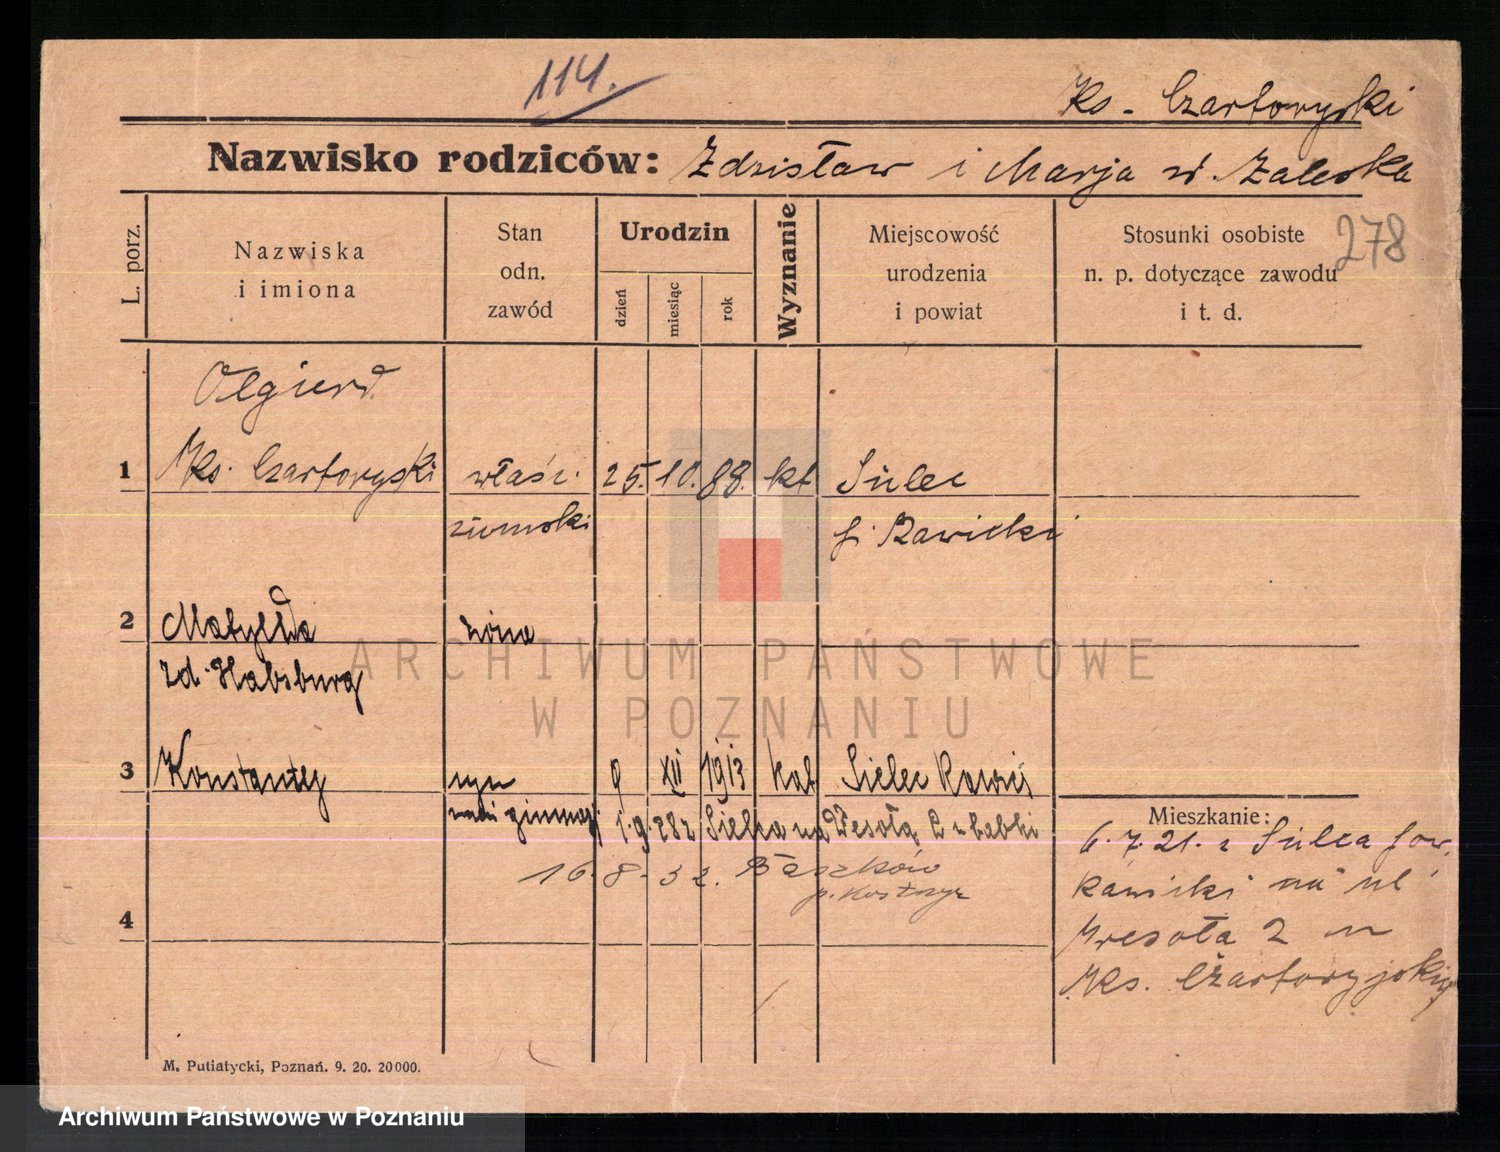 114.
Ks. Czartoryski
Nazwisko rodziców: Zdzisław i Marja zd. Zaleska
L. porz.
Nazwiska
i imiona
Stan
odn.
zawód
Urodzin
dzień
miesiąc
rok
Wyznanie
Miejscowość
urodzenia
i powiat
Stosunki osobiste
n. p. dotyczące zawodu
i t. d.
278
Olgierd
1 Ks. Czartoryski właśc. 25. 10. 88. kt Sielec
ziemski p. Rawicki
2 Matylda żona
zd. Habsburg
3 Konstanty syn 9 XII 1913 kat Sielec Rawicki
1.9.28 z Sielca na Wesołą 2
16. 8. 32. Baszków
4
Mieszkanie:
6.7.21. z Sielca pow.
Rawicki na ul
Wesoła 2
Ks. Czartoryjski
M. Putiatycki, Poznań. 9. 20. 20000.
ARCHIWUM PAŃSTWOWE
W POZNANIU
Archiwum Państwowe w Poznaniu